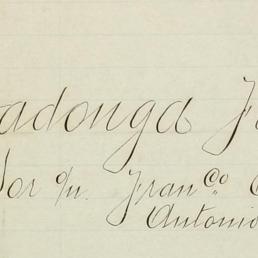 adonga F
or o/u. Fran.co
Antonio